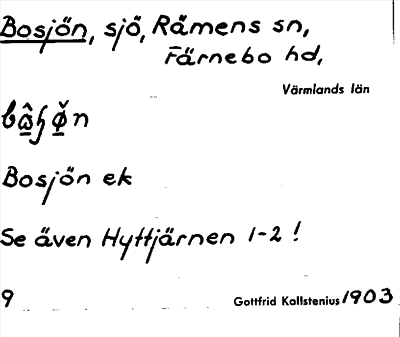 Bosjön, sjö, Råmens sn,
Färnebo hd,
Värmlands län
Bosjön ek
Se även Hyttjärnen 1-2!
9
Gottfrid Kallstenius 1903